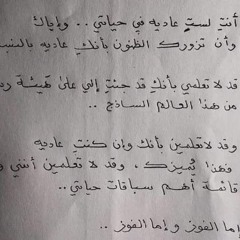 أنتِ لستِ عاديه في حياتي .. وإياك
وأن تزورك الظنون بأنكِ عاديه بالنسبـ
قد لا تعلمي بأنكِ قد جئتِ إلي على هيئة
من هذا العالم الساذج ..
وقد لا تعلمين بأنك وإن كنتِ عاديه
فهذا يُميزك ، وقد لا تعلمين أنني
قائمة أهم سباقات حياتي ..
إما الفوز و إما الفوز ..